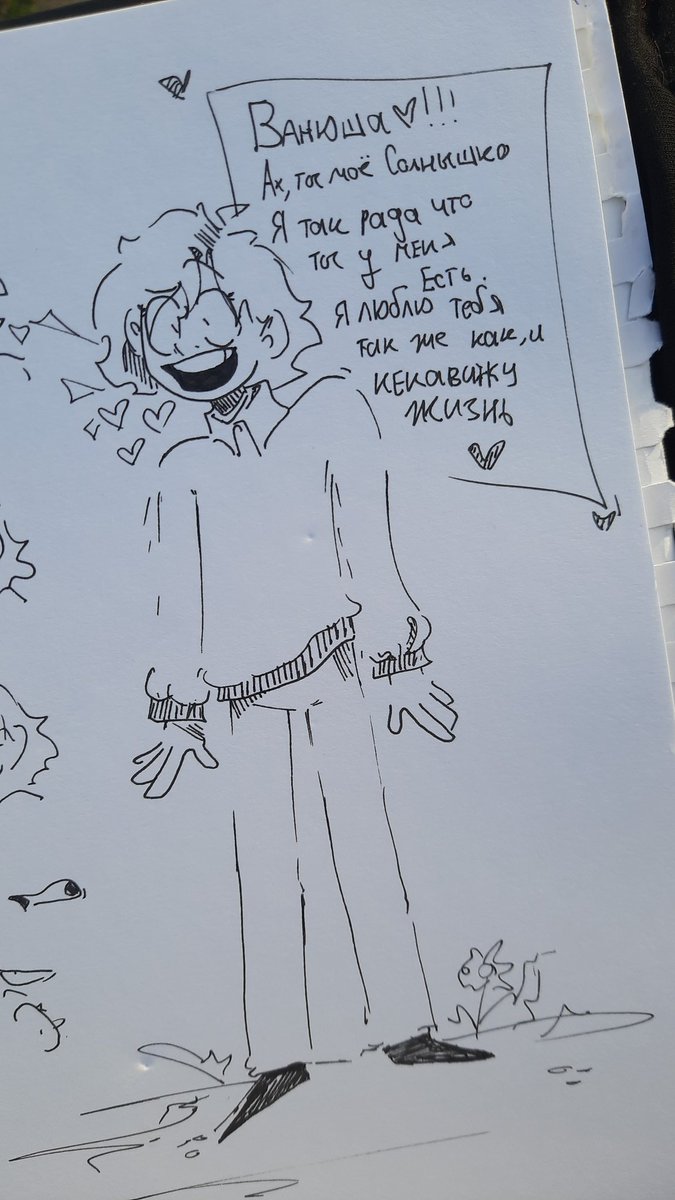 Ванюша♥!!!
Ах, ты моё Солнышко
Я так рада что
ты у меня
Есть.
Я люблю тебя
так же как, и
ненавижу
жизнь